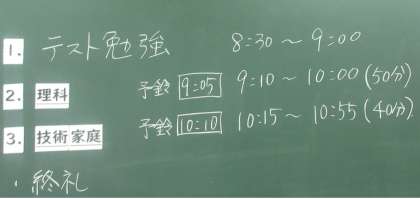 1. テスト勉強 8:30 ~ 9:00
2. 理科 予鈴 9:05 9:10 ~ 10:00 (50分)
3. 技術家庭 予鈴 10:10 10:15 ~ 10:55 (40分)
・終礼